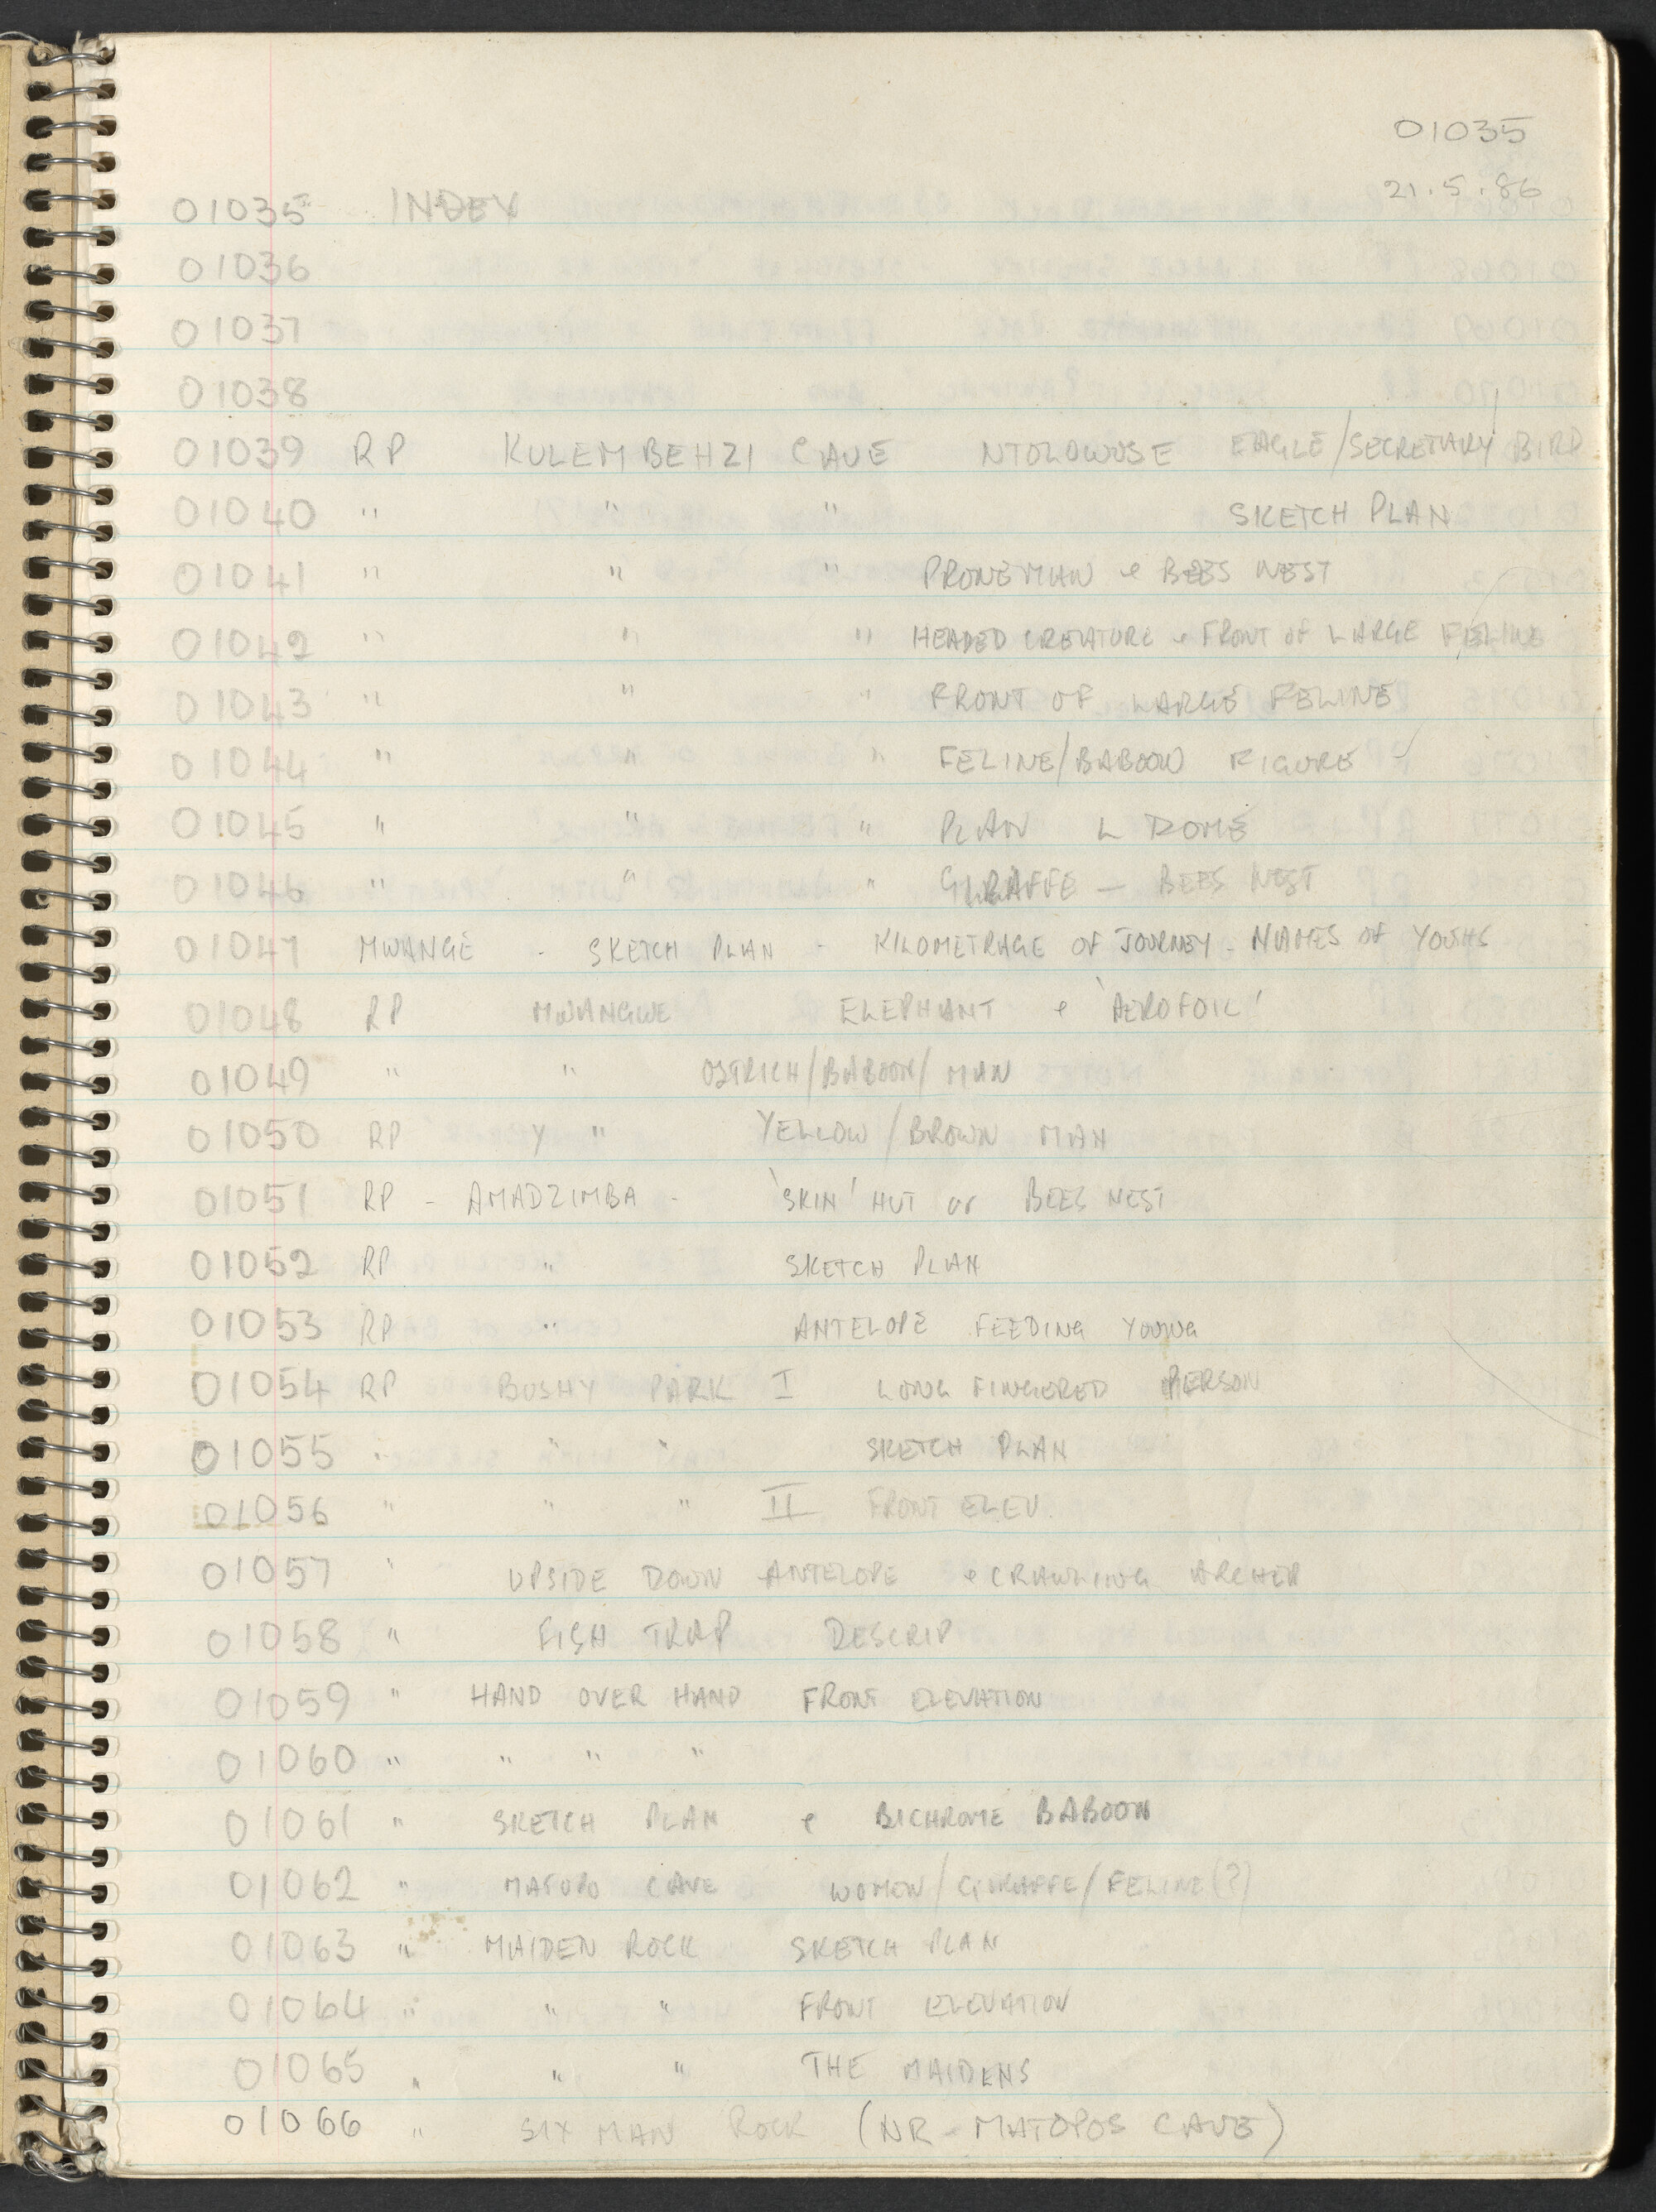 01035
21.5.86
01035 INDEX
01036
01037
01038
01039 RP KULEMBEHZI CAVE NTOLOWUSE EAGLE/SECRETARY BIRD
01040 " " " SKETCH PLAN
01041 " " " PRONE MAN & BEES NEST
01042 " " " HEADED CREATURE & FRONT OF LARGE FELINE
01043 " " " FRONT OF LARGE FELINE
01044 " " " FELINE/BABOON FIGURE
01045 " " " PLAN L DOME
01046 " " " GIRAFFE — BEES NEST
01047 MWANGE - SKETCH PLAN - KILOMETRAGE OF JOURNEY - NAMES OF YOUHS
01048 RP MWANGWE ELEPHANT & 'AEROFOIL'
01049 " " OSTRICH/BABOON/MAN
01050 RP " YELLOW/BROWN MAN
01051 RP - AMADZIMBA - 'SKIN' HUT or BEES NEST
01052 RP " SKETCH PLAN
01053 RP " ANTELOPE FEEDING YOUNG
01054 RP BUSHY PARK I LONG FINGERED PERSON
01055 " " " SKETCH PLAN
01056 " " " II FRONT ELEV.
01057 " UPSIDE DOWN ANTELOPE & CRAWLING ARCHER
01058 " FISH TRAP DESCRIP
01059 " HAND OVER HAND FRONT ELEVATION
01060 " " " "
01061 " SKETCH PLAN & BICHROME BABOON
01062 " MATOPO CAVE WOMEN/GIRAFFE/FELINE(?)
01063 " MAIDEN ROCK SKETCH PLAN
01064 " " " FRONT ELEVATION
01065 " " " THE MAIDENS
01066 " SIX MAN ROCK (NR - MATOPOS CAVE)